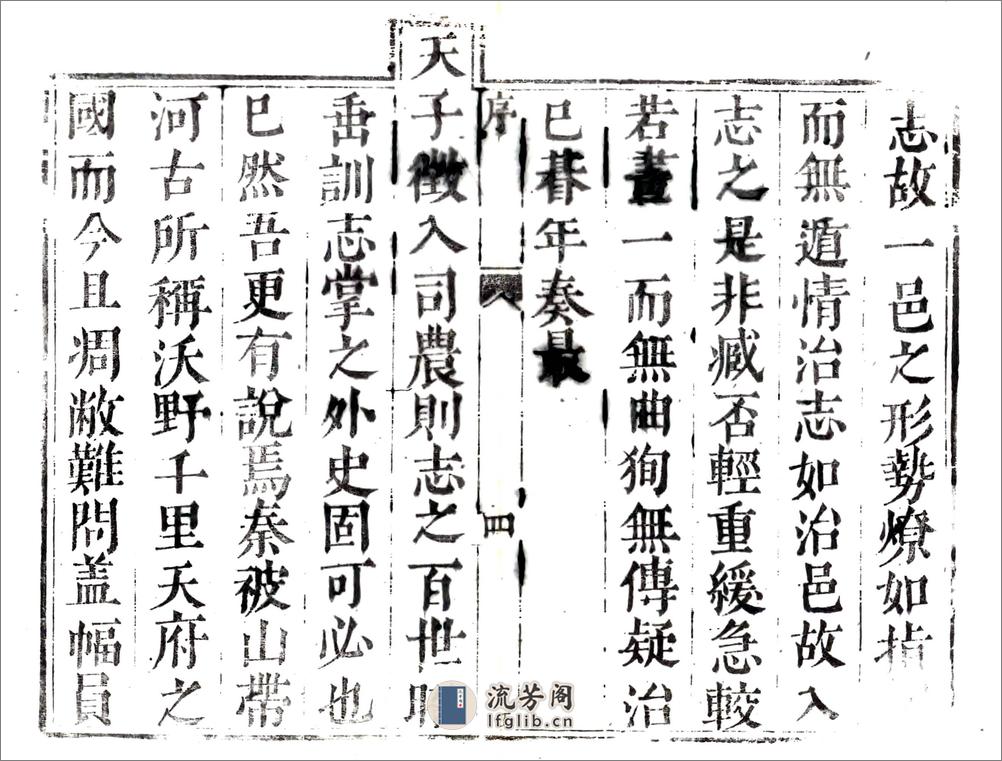 志故一邑之形勢燎如指
而無遁情治志如治邑故入
志之是非臧否輕重緩急較
若畫一而無曲狥無傳疑治
已朞年奏最
序
四
天子徵入司農則志之百世
垂訓志掌之外史固可必也
已然吾更有說焉秦被山帶
河古所稱沃野千里天府之
國而今且凋敝難問盖幅員
流芳阁
lfglib.cn